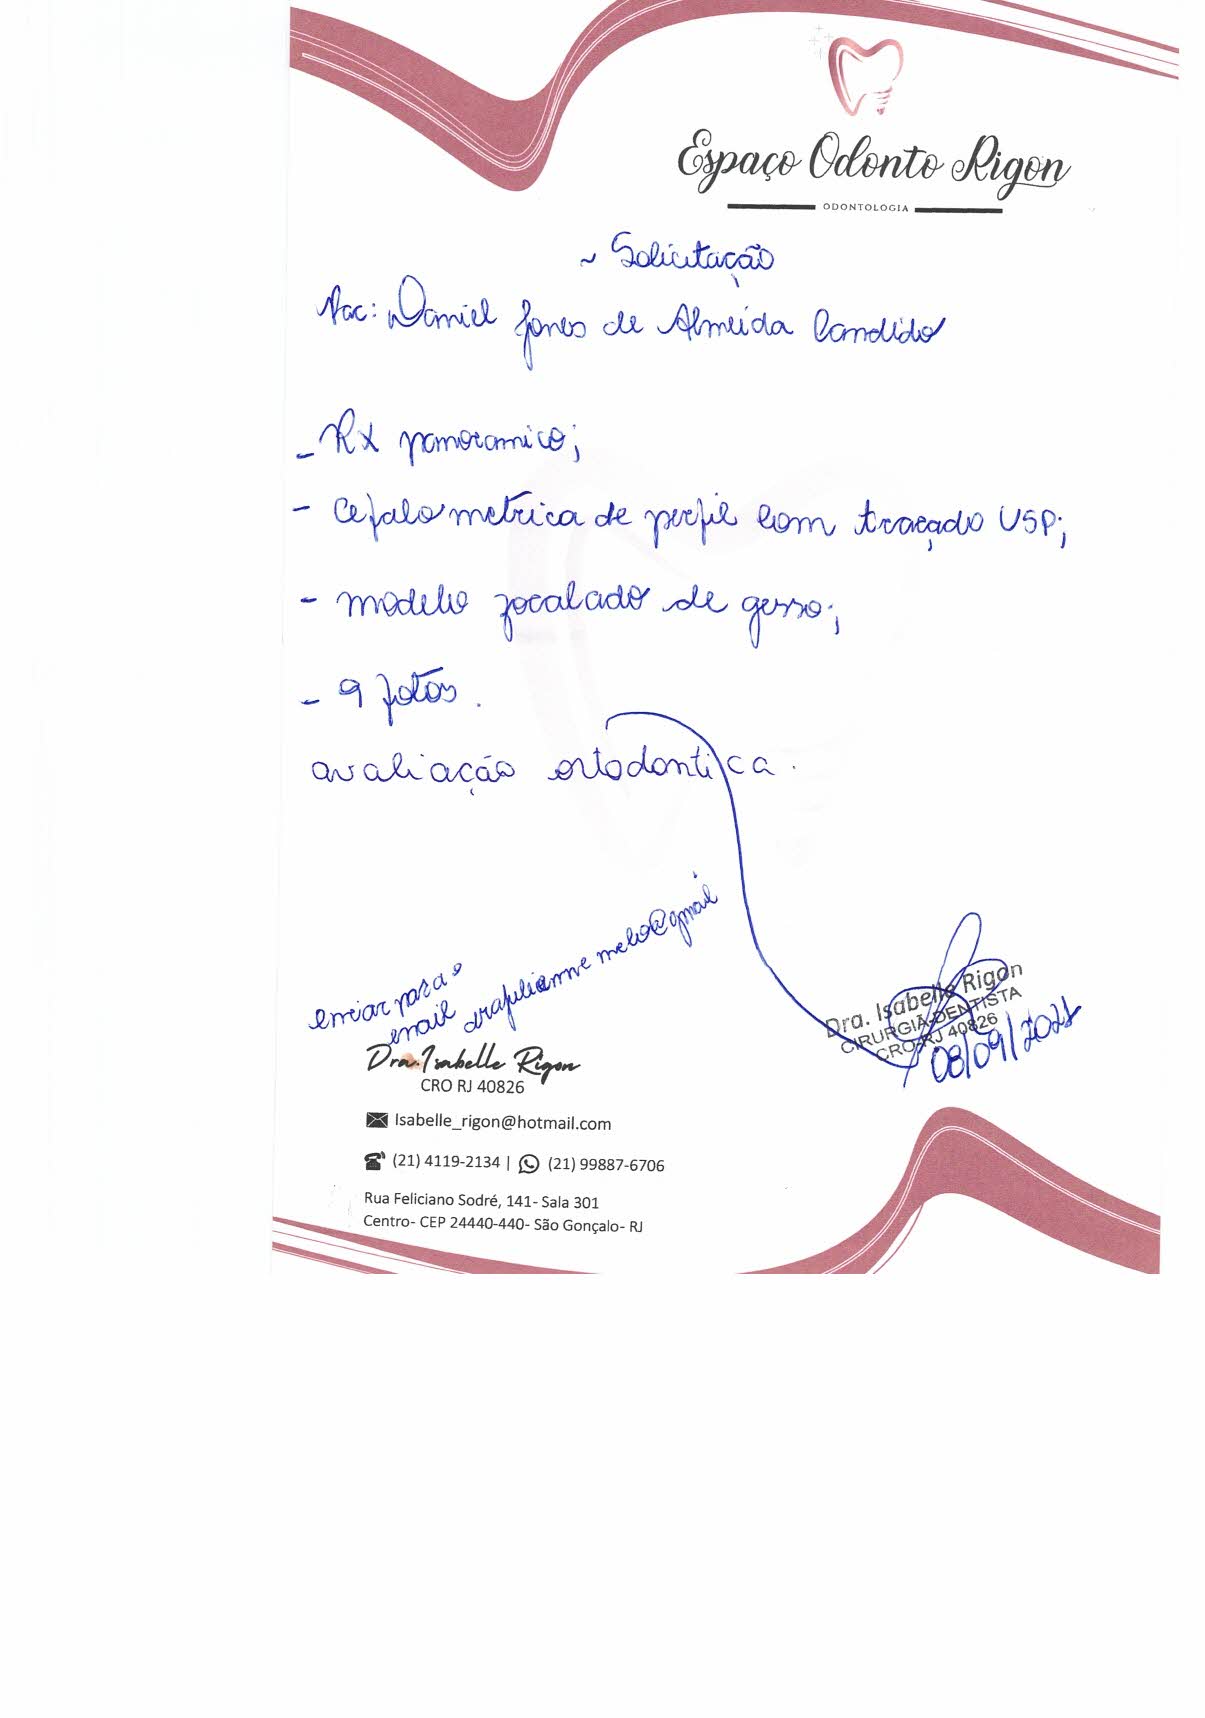 Espaço Odonto Rigon
ODONTOLOGIA
~ Solicitação
Pac: Daniel Jones de Almeida Candido
- RX panoramico;
- Cefalometrica de perfil com traçado USP;
- modelo zocalado de gesso;
- 9 fotos.
avaliação ortodontica.
enviar para o
email drajulianne melo@gmail
Dra. Isabelle Rigon
CIRURGIÃ-DENTISTA
CRO-RJ 40826
08/09/2021
Dra. Isabelle Rigon
CRO RJ 40826
Isabelle_rigon@hotmail.com
(21) 4119-2134 | (21) 99887-6706
Rua Feliciano Sodré, 141- Sala 301
Centro- CEP 24440-440- São Gonçalo- RJ